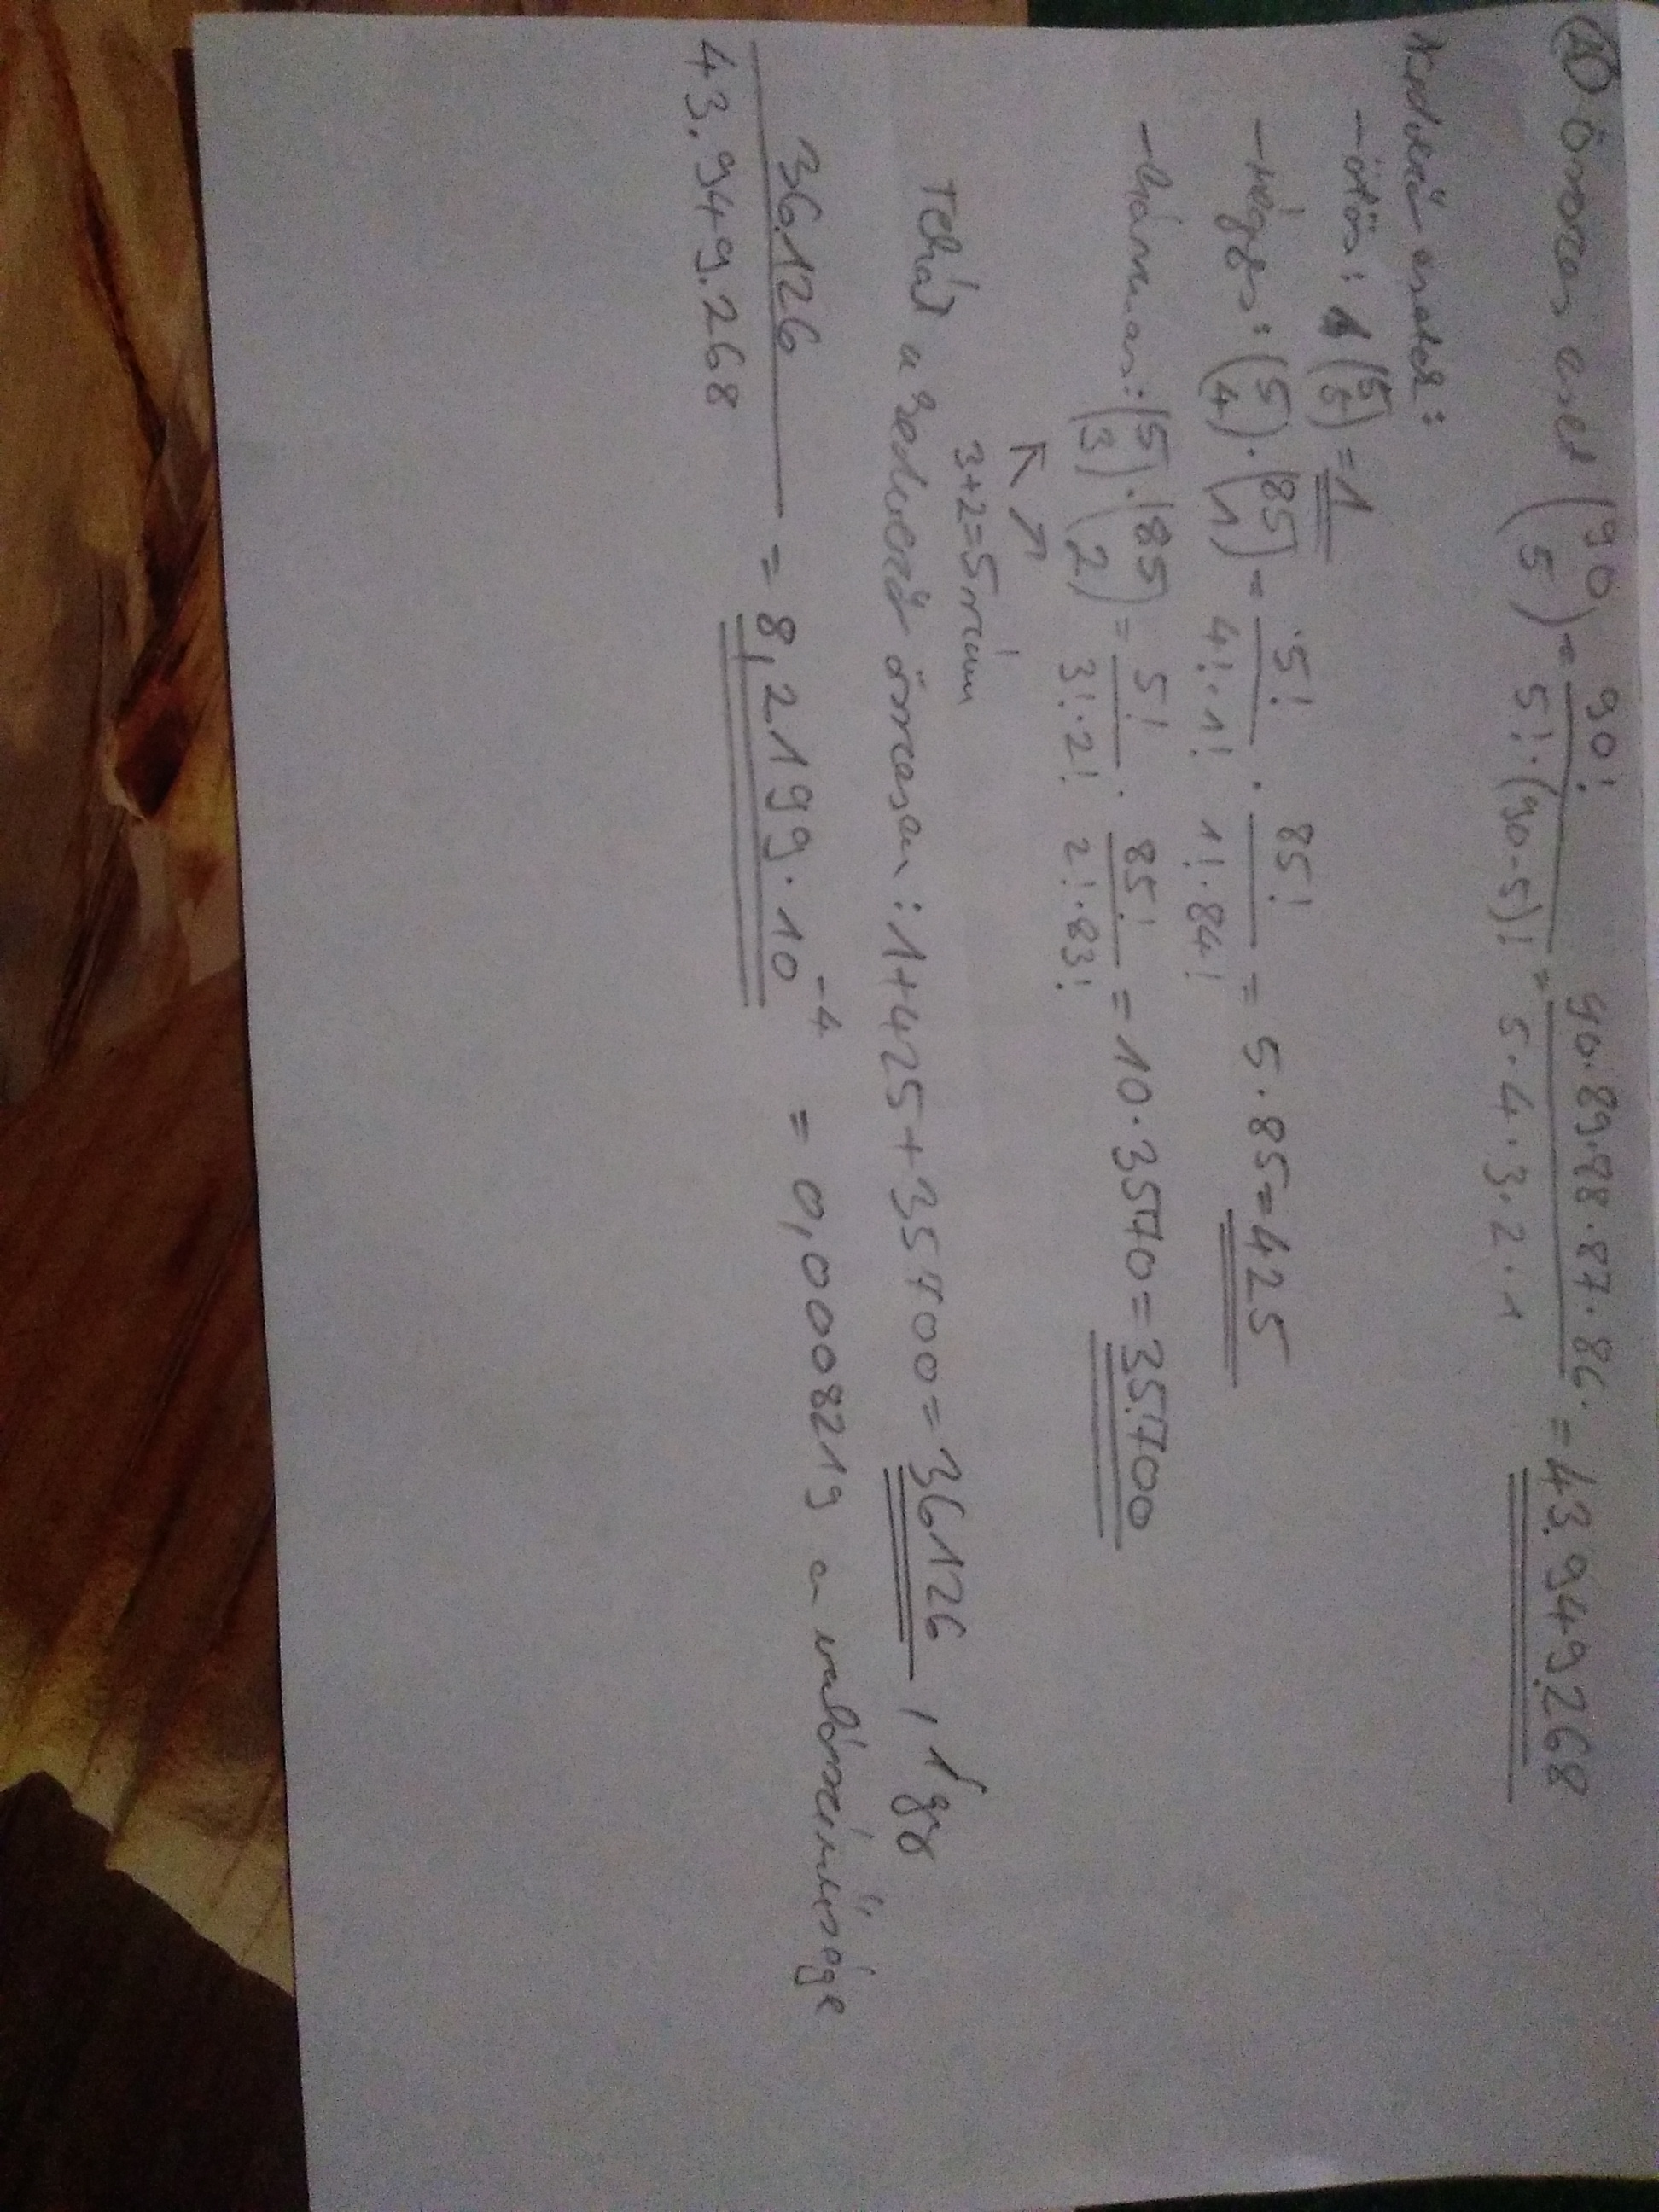 A) Összes eset (90 5) = 90! / 5!·(90-5)! = 90·89·88·87·86 / 5·4·3·2·1 = 43.949.268
Kedvező esetek:
-ötös: (5 5) = 1
-négyes: (5 4)·(85 1) = 5! / 4!·1! · 85! / 1!·84! = 5·85=425
-hármas: (5 3)·(85 2) = 5! / 3!·2! · 85! / 2!·83! = 10·3570=35700
↖ ↗
3+2=5 szám
Tehát a kedvező összesen: 1+425+35700=36126, így
36126 / 43.949.268 = 8,2199·10^-4 = 0,0008219 a valószínűsége